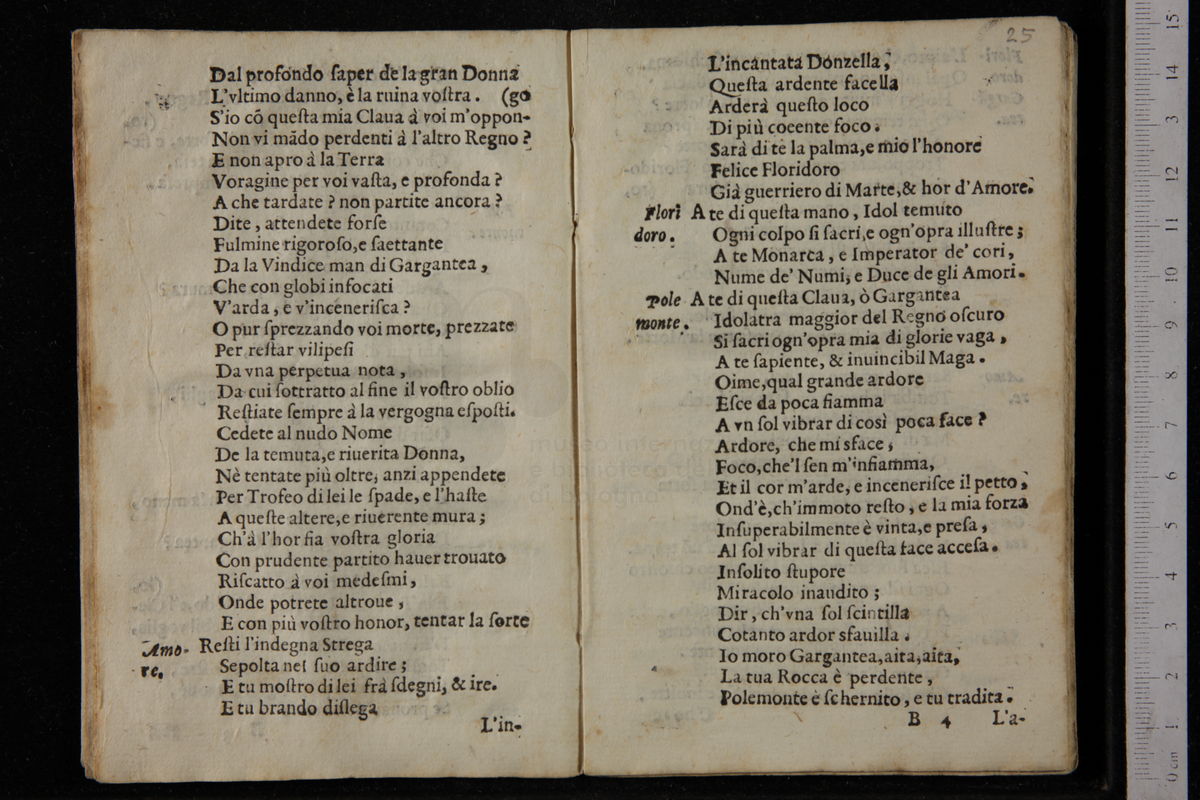 Dal profondo ſaper de la gran Donna
L'vltimo danno, è la ruina voſtra. (go
S'io cõ queſta mia Claua à voi m'oppon-
Non vi mãdo perdenti à l'altro Regno?
E non apro à la Terra
Voragine per voi vaſta, e profonda?
A che tardate? non partite ancora?
Dite, attendete forſe
Fulmine rigoroſo,e ſaettante
Da la Vindice man di Gargantea,
Che con globi infocati
V'arda, e v'inceneriſca?
O pur ſprezzando voi morte, prezzate
Per reſtar vilipeſi
Da vna perpetua nota,
Da cui ſottratto al fine il voſtro oblio
Reſtiate ſempre à la vergogna eſpoſti.
Cedete al nudo Nome
De la temuta,e riuerita Donna,
Nè tentate più oltre; anzi appendete
Per Trofeo di lei le ſpade, e l'haſte
A queſte altere,e riuerente mura;
Ch'à l'hor fia voſtra gloria
Con prudente partito hauer trouato
Riſcatto à voi medeſmi,
Onde potrete altroue,
E con più voſtro honor, tentar la ſorte
Amo- Reſti l'indegna Strega
re. Sepolta nel ſuo ardire;
E tu moſtro di lei frà ſdegni, & ire.
E tu brando diſlega
L'in-
25
L'incantata Donzella;
Queſta ardente facella
Arderà queſto loco
Di più cocente foco.
Sarà di te la palma,e mio l'honore
Felice Floridoro
Già guerriero di Marte,& hor d'Amore.
Flori A te di queſta mano, Idol temuto
doro. Ogni colpo ſi ſacri,e ogn'opra illuſtre;
A te Monarca, e Imperator de' cori,
Nume de' Numi, e Duce de gli Amori.
Pole A te di queſta Claua, ò Gargantea
monte. Idolatra maggior del Regno oſcuro
Si ſacri ogn'opra mia di glorie vaga,
A te ſapiente, & inuincibil Maga.
Oime,qual grande ardore
Eſce da poca fiamma
A vn ſol vibrar di così poca face?
Ardore, che mi sface,
Foco,che'l ſen m'infiamma,
Et il cor m'arde, e inceneriſce il petto,
Ond'è,ch'immoto reſto, e la mia forza
Inſuperabilmente è vinta,e preſa,
Al ſol vibrar di queſta face acceſa.
Inſolito ſtupore
Miracolo inaudito;
Dir, ch'vna ſol ſcintilla
Cotanto ardor sfauilla.
Io moro Gargantea,aita,aita,
La tua Rocca è perdente,
Polemonte è ſchernito, e tu tradita.
B 4 L'a-